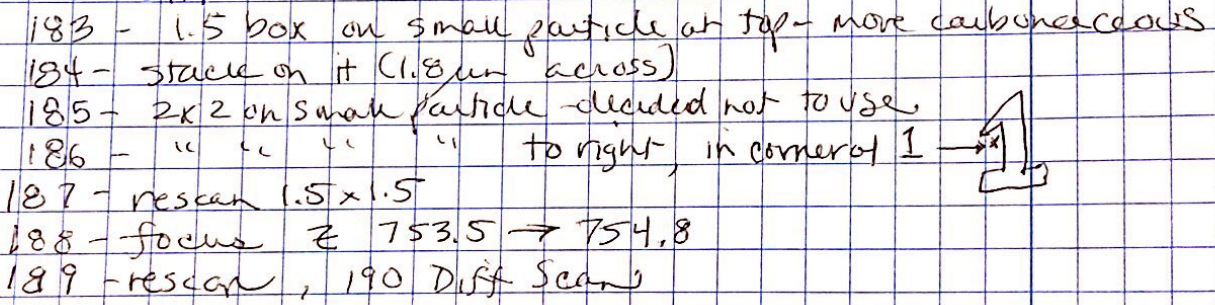 183 - 1.5 box on small particle at top - more carbonaceous
184 - stack on it (1.8 um across)
185 - 2x2 on small particle - decided not to use
186 - " " " " to right, in corner of 1 →
187 - rescan 1.5 x 1.5
188 - focus z 753.5 → 754.8
189 - rescan, 190 Diff Scan